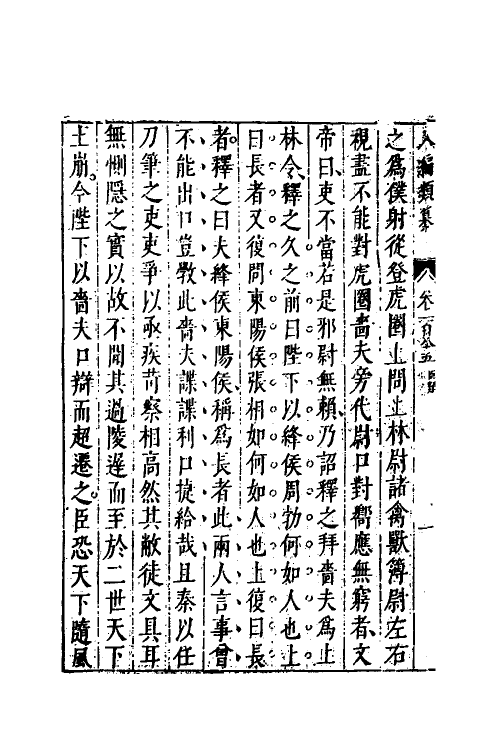 八編類纂 卷一百
之爲僕射從登虎圈上問上林尉諸禽獸簿尉左右
視盡不能對虎圈嗇夫旁代尉口對嚮應無窮者文
帝曰吏不當若是邪尉無賴乃詔釋之拜嗇夫爲上
林令釋之久之前曰陛下以絳侯周勃何如人也上
曰長者又復問東陽侯張相如何如人也上復曰長
者釋之曰夫絳侯東陽侯稱爲長者此兩人言事曾
不能出口豈斆此嗇夫諜諜利口捷給哉且秦以任
刀筆之吏吏爭以亟疾苛察相高然其敝徒文具耳
無惻隱之實以故不聞其過陵遲而至於二世天下
土崩今陛下以嗇夫口辯而超遷之臣恐天下隨風